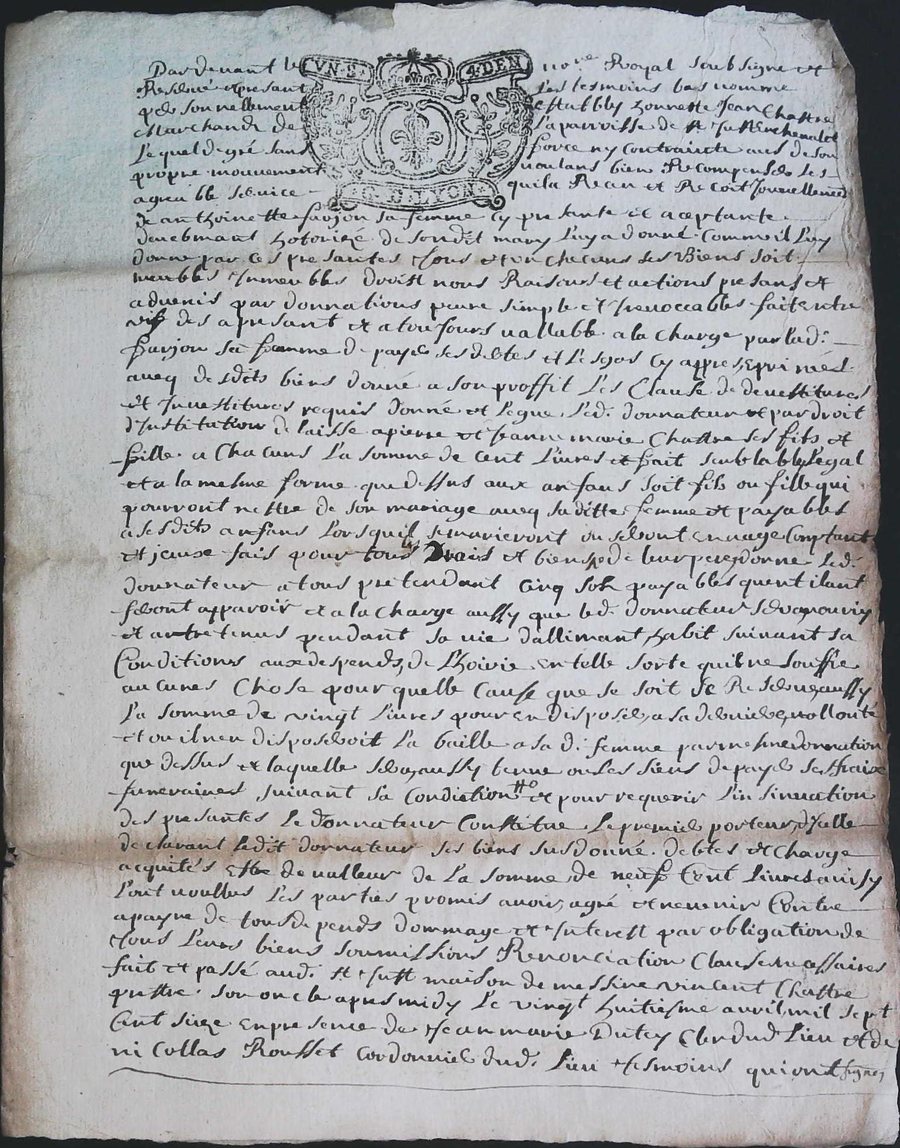 Pardevant le no.re Royal soubsigné et
VN.S. 4.DEN
Reservé et presant Les tesmoins bas nomme
personnellement establly honneste Jean Chattre
Marchand de la parroisse de St Just
Lequel de gré sans force ny Contrainte ains de son
propre mouvement voulans bien Recompenser Les
agreable service quil a Reçu et Recoit Journellement
G. LYON
de anthoinette farjon sa femme Cy presante et aceptante
deuebmant hotorizé de son dit mary Luy a donné Comme il Luy
donne par Ces presantes Tous et un chacuns ses Biens soit
meubles Inmeubles droits nous Raisons et actions presans et
advenir par donnations pure simple et Irevoccables fait entre
vifs des a presant et a tousjours vallable a la Charge par lad.
farjon sa femme de payer ses debtes et Legas Cy appres Exprimés
aveq desdits biens donné a son proffit Les Clause de devestitures
et Investitures requis donné et Legue Led. donnateur et par droit
d'Institution delaisse a pierre et Jeanne marie Chattre ses fils et
fille a Chacuns La somme de Cent Livres et fait semblable Legal
et a la mesme forme que dessus aux anfans soit fils ou fille qui
pourront nestre de son mariage aveq saditte femme et payables
a sesdits anfans Lorsquil se marieront ou seront en aage Comptant
et jeux fais pour tous Drais et biens de leur pere donne Led.
donnateur a tous pretendant Cinq sols payables quent ilant
feront apparoir et a la Charge aussy que led. donnateur sera nourry
et antretenus pendant sa vie dallimant habit suivant sa
Conditions aux despends de Lhoirie en telle sorte quil ne souffre
aucunes Chose pour quelle Cause que se soit se Reserve aussy
La somme de vingt Livres pour en disposer a sa derniere vollonté
et ou il nen disposeroit La baille a sa d. femme par mesme donnation
que dessus et laquelle sera aussy tenue ou Les siens de payer ses fraix
funeraires suivant sa Condiction et pour requerir Linsinuation
des presantes Le donnateur Constitue Le premier porteur d'Icelle
declarant Ledit donnateur ses biens susdonné debtes et Charge
acquités Estre de valleur de La somme de neuf Cent Livres ainsy
Lont voullus Les parties promis avoir agré et ne venir Contre
a payne de tous depends dommage et Interest par obligation de
Tous Leurs biens soumissions Renonciation Clause
fait et passé aud. St Just maison de messire vincent Chattre
prestre son oncle apres midy Le vingt huitiesme avril mil sept
Cent seize en presence de Jean marie Dutey Clerdud. Lieu et de
nicollas Rousset Cordonnier dud. Lieu tesmoins qui ont signes